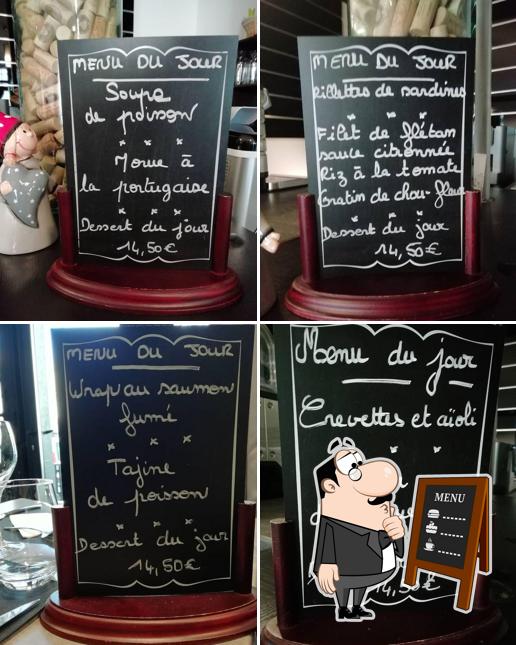 MENU DU JOUR
Soupe
de poisson
Morue à
la portugaise
Dessert du jour
14,50€
MENU DU JOUR
Rillettes de sardines
Filet de flétan
sauce citronnée
Riz à la tomate
Gratin de chou-fleur
Dessert du jour
14,50€
MENU DU JOUR
Wrap au saumon
fumé
Tajine
de poisson
Dessert du jour
14,50€
Menu du jour
Crevettes et aïoli
MENU